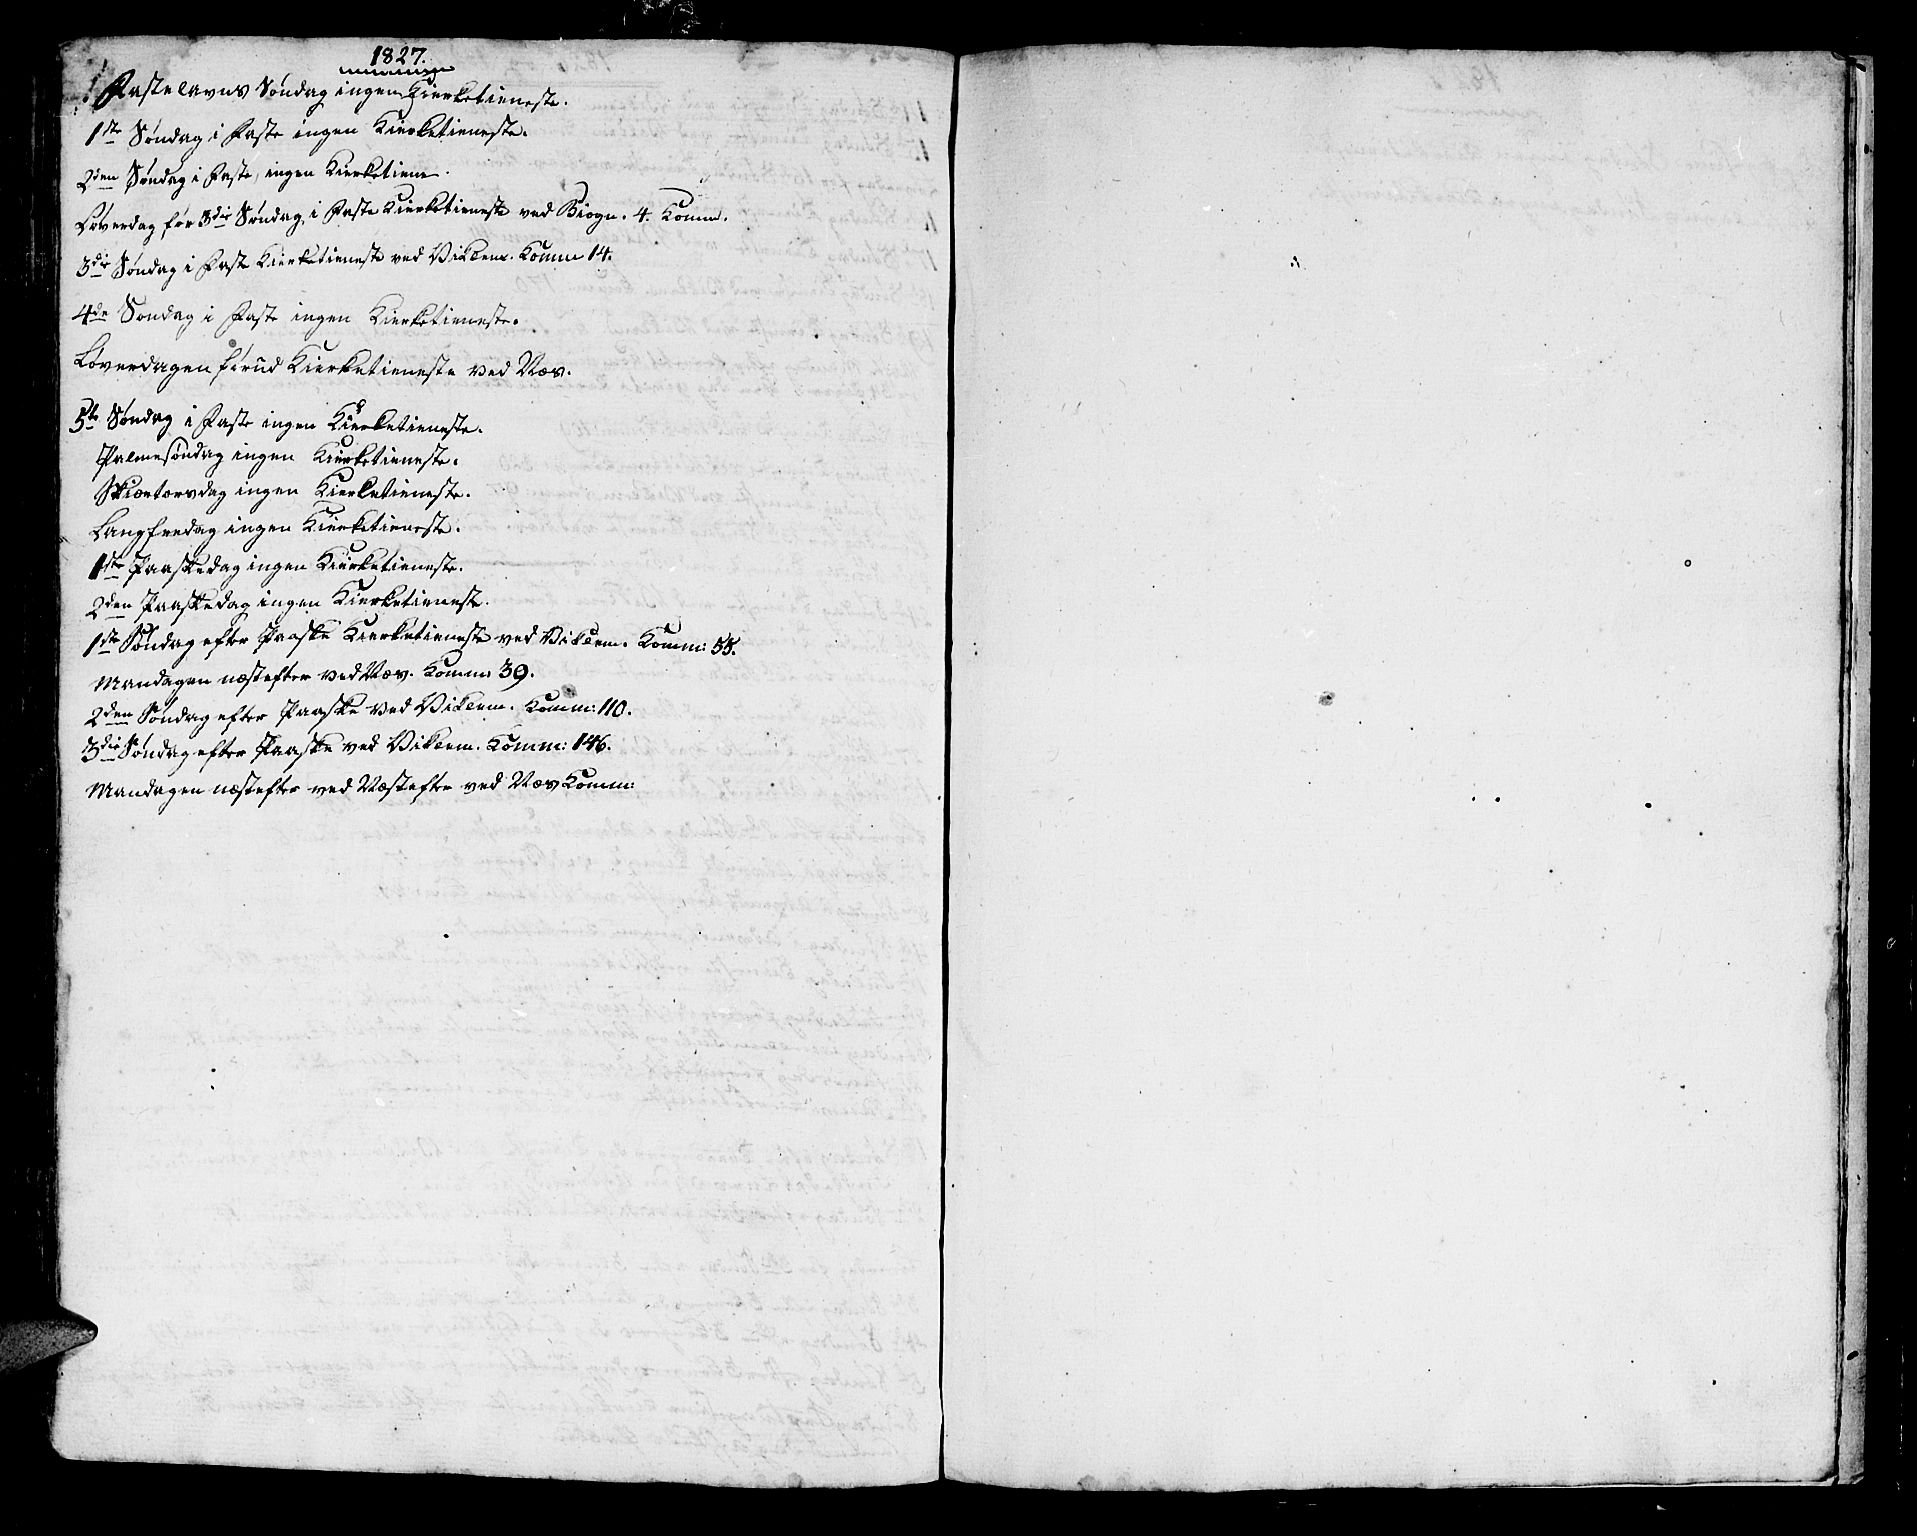 1827.
Fastelavns Søndag ingen Kierketieneste.
1ste Søndag i Faste ingen Kierketieneste.
2den Søndag i Faste, ingen Kierketiene.
Løverdag før 3die Søndag i Faste Kierketieneste ved Biøgn. 4. Komm.
3die Søndag i Faste Kierketieneste ved Viklem. Komm 14.
4de Søndag i Faste ingen Kierketieneste.
Løverdagen forud Kierketieneste ved Næs.
5te Søndag i Faste ingen Kierketieneste.
Palmesøndag ingen Kierketieneste.
Skiærtorsdag ingen Kierketieneste.
Langfredag ingen Kierketieneste.
1ste Paaskedag ingen Kierketieneste.
2den Paaskedag ingen Kierketieneste.
1ste Søndag efter Paaske Kierketieneste ved Viklem. Komm: 55.
Mandagen næstefter ved Næs. Komm: 39.
2den Søndag efter Paaske ved Viklem. Komm: 110.
3die Søndag efter Paaske ved Viklem. Komm: 146.
Mandagen næstefter ved Næstefter ved Næs Komm: